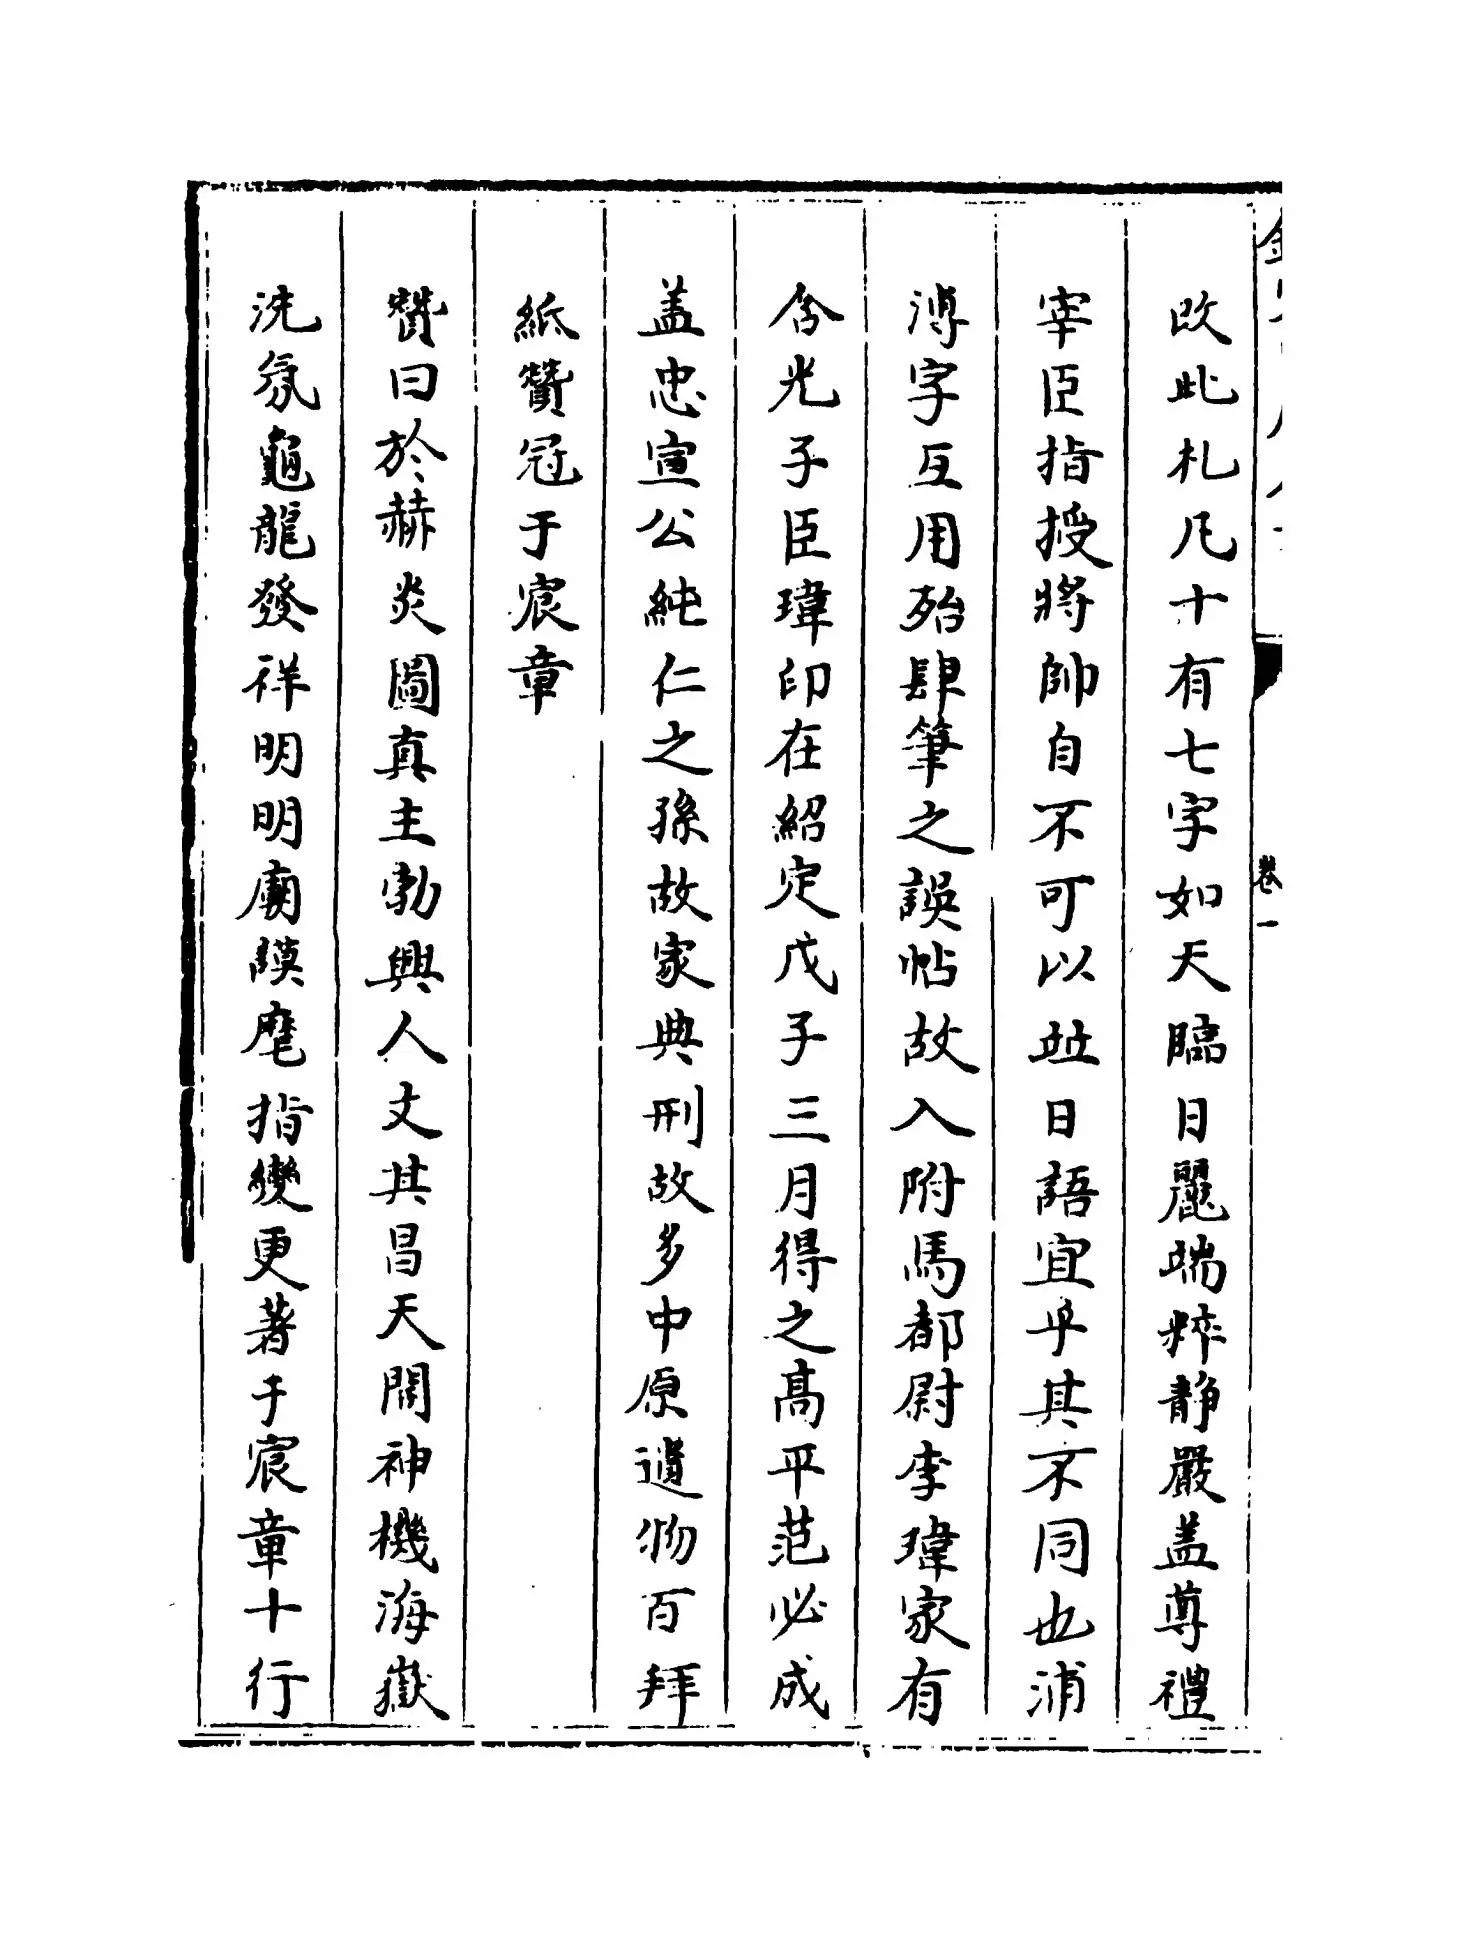 改此札凡十有七字如天臨日麗端粹静嚴盖尊禮
宰臣指授將帥自不可以並日語宜乎其不同也浦
溥字互用殆肆筆之誤帖故入附馬都尉李瑋家有
含光子臣瑋印在紹定戊子三月得之髙平范必成
盖忠宣公純仁之孫故家典刑故多中原遺物百拜
紙贊冠于宸章
贊曰於赫炎圖真主勃興人文其昌天開神機海嶽
洗氛龜龍發祥明明廟謨麾指變更著于宸章十行
卷一